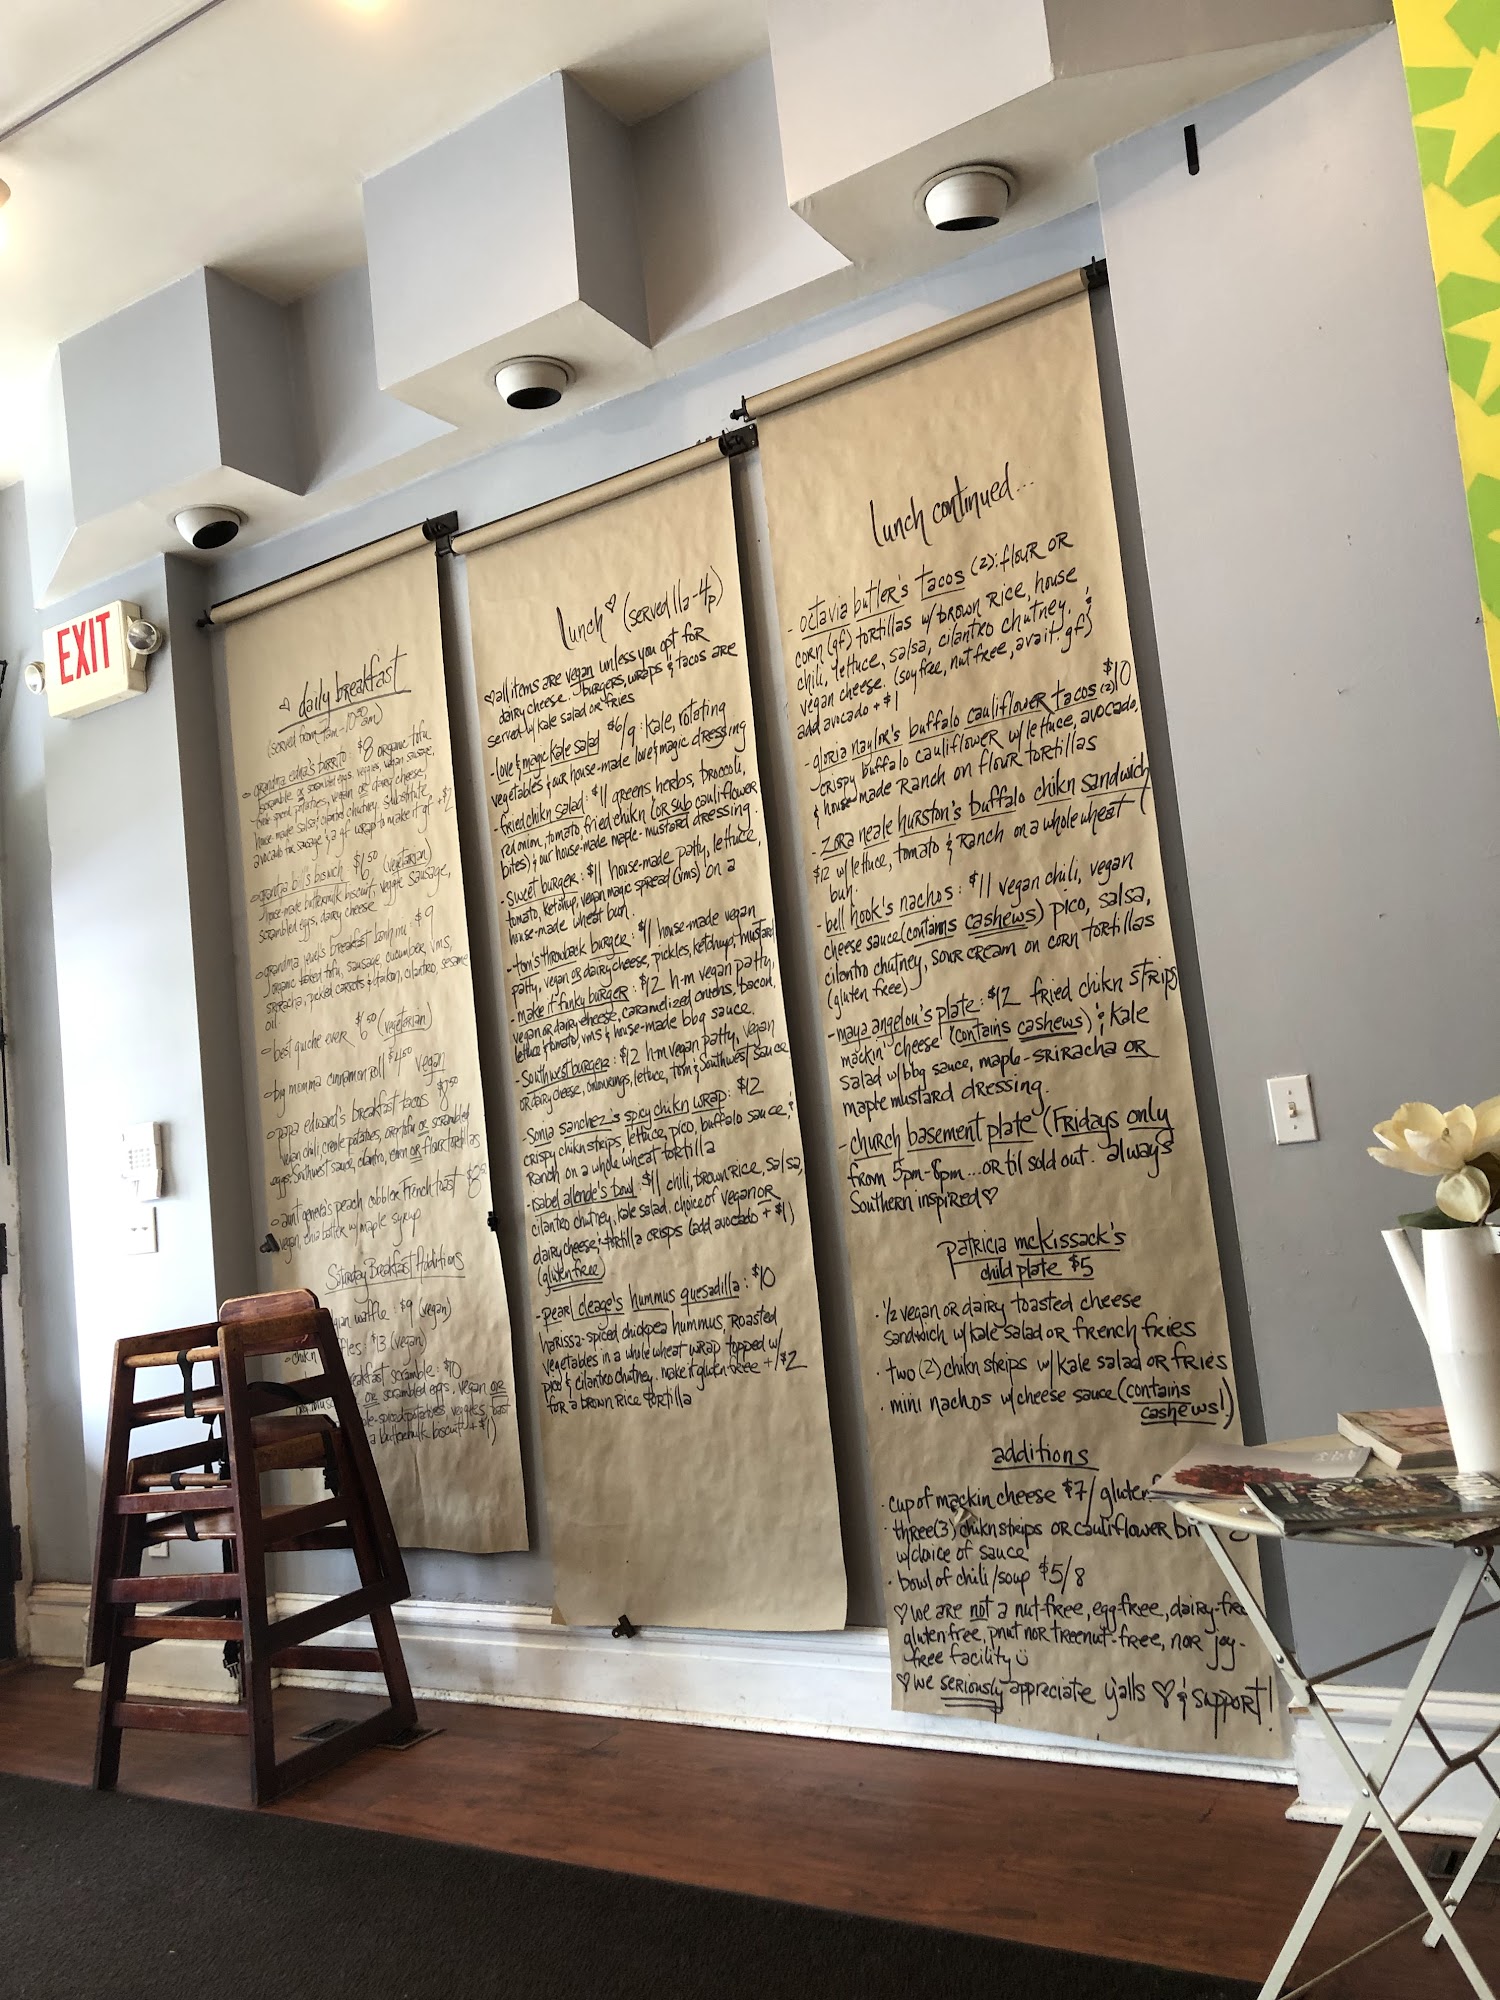 EXIT
♡ daily breakfast
(served from 7am-10:30am)
grandma edna's burrito: $8 organic tofu
scramble or scrambled eggs, veggies, vegan sausage,
potatoes, vegan or dairy cheese,
house made salsa, cilantro chutney. substitute
avocado for sausage & a gf wrap to make it gf +$2
grandpa bill's biswich $6.50 (vegetarian)
house-made buttermilk biscuit, veggie sausage,
scrambled eggs, dairy cheese
grandma jewel's breakfast banh mi $9
organic baked tofu, sausage, cucumber, vms,
sriracha, pickled carrots & daikon, cilantro, sesame
oil.
best quiche ever $6.50 (vegetarian)
big momma cinnamon roll $4.50 vegan
papa edward's breakfast tacos $7.50
vegan chili, creole potatoes, over tofu or scrambled
eggs, southwest sauce, cilantro, corn or flour tortillas
aunt geneva's peach cobbler french toast
vegan, chia batter w/ maple syrup
Saturday Breakfast Additions
gian waffle: $9 (vegan)
chikn ffles: $13 (vegan)
eakfast scramble: $10
or scrambled eggs, vegan or
le-spiced potatoes, veggies, toast
a buttermilk biscuit +$1)
lunch ♡ (served 11a-4p)
♡ all items are vegan unless you opt for
dairy cheese. burgers, wraps & tacos are
served w/ kale salad or fries
- love & magic kale salad $6/9: kale, rotating
vegetables & our house-made love & magic dressing
- fried chikn salad: $11 greens herbs, broccoli,
red onion, tomato, fried chikn (or sub cauliflower
bites) & our house-made maple-mustard dressing.
- sweet burger: $11 house-made patty, lettuce,
tomato, ketchup, vegan magic spread (vms) on a
house-made wheat bun.
- tom's throwback burger: $11 house-made vegan
patty, vegan or dairy cheese, pickles, ketchup, mustard
- make it funky burger: $12 h-m vegan patty,
vegan or dairy cheese, caramelized onions, bacon,
lettuce, tomato, vms & house-made bbq sauce.
- Southwest burger: $12 h-m vegan patty, vegan
or dairy cheese, onion rings, lettuce, tom & Southwest sauce
- Sonia sanchez's spicy chikn wrap: $12
crispy chikn strips, lettuce, pico, buffalo sauce, &
ranch on a whole wheat tortilla
- Isabel allende's bowl $11 chili, brown rice, salsa,
cilantro chutney, kale salad. choice of vegan or
dairy cheese, & tortilla crisps (add avocado + $1)
(gluten free)
- pearl cleage's hummus quesadilla: $10
harissa-spiced chickpea hummus, roasted
vegetables in a whole wheat wrap topped w/
pico & cilantro chutney. make it gluten free +1 $2
for a brown rice tortilla
lunch continued...
- octavia butler's tacos (2): flour or
corn (gf) tortillas w/ brown rice, house
chili, lettuce, salsa, cilantro chutney, &
vegan cheese. (soy free, nut free, avail. gf)
add avocado + $1
- gloria naylor's buffalo cauliflower tacos (2) $10
crispy buffalo cauliflower w/ lettuce, avocado,
& house made ranch on flour tortillas
- zora neale hurston's buffalo chikn sandwich
$12 w/ lettuce, tomato & ranch on a whole wheat
bun.
- bell hook's nachos: $11 vegan chili, vegan
cheese sauce (contains cashews) pico, salsa,
cilantro chutney, sour cream on corn tortillas
(gluten free)
- maya angelou's plate: $12 fried chikn strips
mackin' cheese (contains cashews) & kale
salad w/ bbq sauce, maple-sriracha or
maple mustard dressing.
- church basement plate (Fridays only
from 5pm-8pm... or til sold out. always
Southern inspired ♡
patricia mckissack's
child plate $5
· 1/2 vegan or dairy toasted cheese
sandwich w/ kale salad or french fries
· two (2) chikn strips w/ kale salad or fries
· mini nachos w/ cheese sauce (contains
cashews!)
additions
· cup of mackin cheese $7/ gluten
· three (3) chikn strips or cauliflower
w/ choice of sauce
· bowl of chili/soup $5/8
♡ we are not a nut-free, egg free, dairy-free
gluten free, pnut nor treenut-free, nor joy-
free facility
♡ we seriously appreciate y'alls ♡ & support!